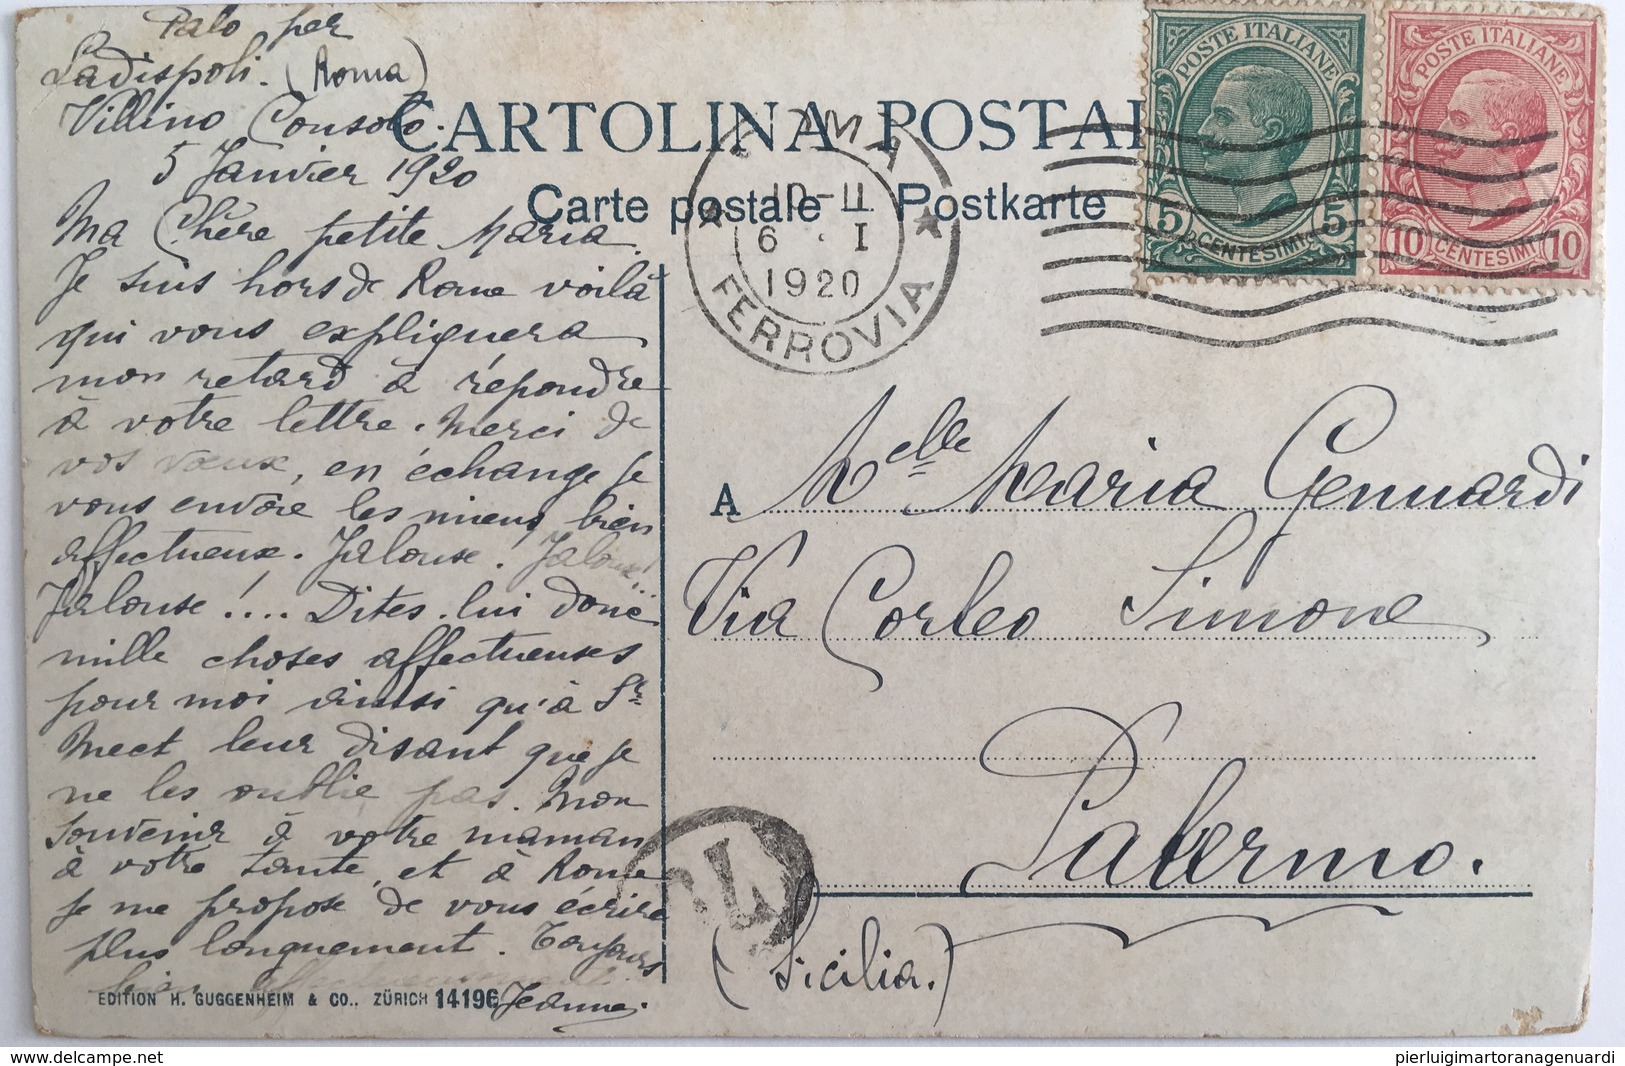 Palo per
Ladispoli. (Roma)
Villino Consolo.
5 Janvier 1920
Ma Chère petite Maria.
Je suis hors de Rome voilà
qui vous expliquera
mon retard à répondre
à votre lettre. Merci de
vos vœux, en échange je
vous envoie les miens bien
affectueux. Jalouse! Jalouse!
Jalouse!.... Dites-lui donc
mille choses affectueuses
pour moi ainsi qu'à Sr
Mect leur disant que je
ne les oublie pas. Mon
souvenir à votre maman
à votre tante, et à Rome
je me propose de vous écrire
plus longuement. Toujours
bien affectueusement
Jeanne.
CARTOLINA POSTAL
Carte postale – Postkarte
ROMA
10-11
6 · I
1920
FERROVIA
POSTE ITALIANE
5 CENTESIMI 5
POSTE ITALIANE
10 CENTESIMI 10
A Melle Maria Gennardi
Via Corleo Simone
Palermo.
(Sicilia.)
EDITION H. GUGGENHEIM & CO., ZÜRICH 14196
delcampe.net
pierluigimartoranagenuardi